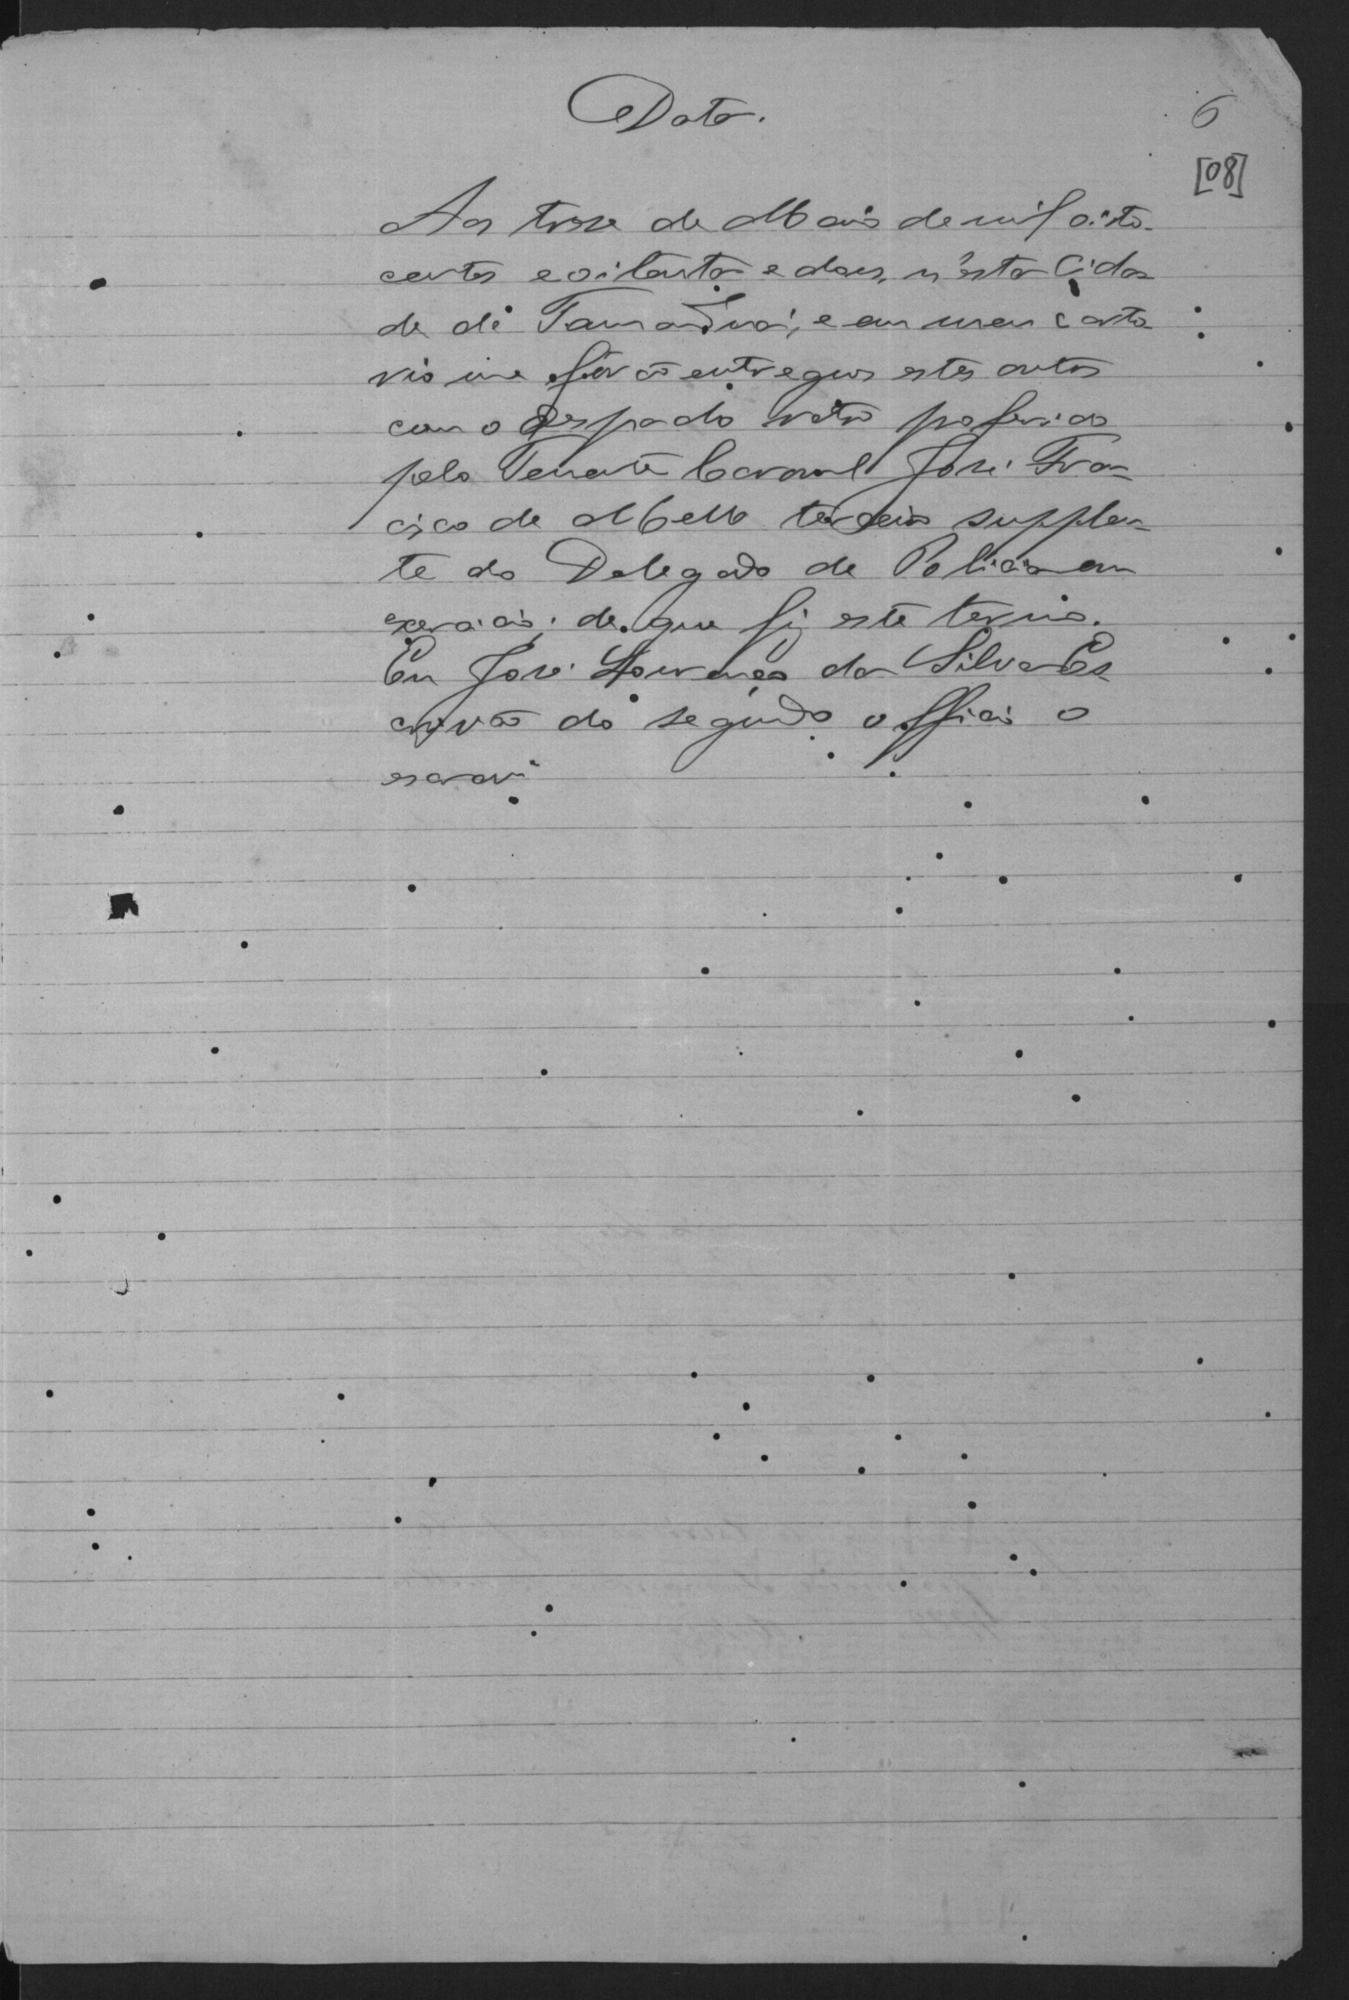 Data.
6
[08]
Aos trese de Maio de mil oito
centos e oitenta e dous, n'esta Cida
de de Tamanduá, e em meu carto
rio me forão entregues estes autos
com o despacho retro proferido
pelo Tenente Coronel José Fran
cisco de Mello terceiro supplen
te do Delegado de Policia em
exercicio; de que fiz este termo.
Eu José Lourenço da Silva Es
crivão do segundo officio o
escrevi